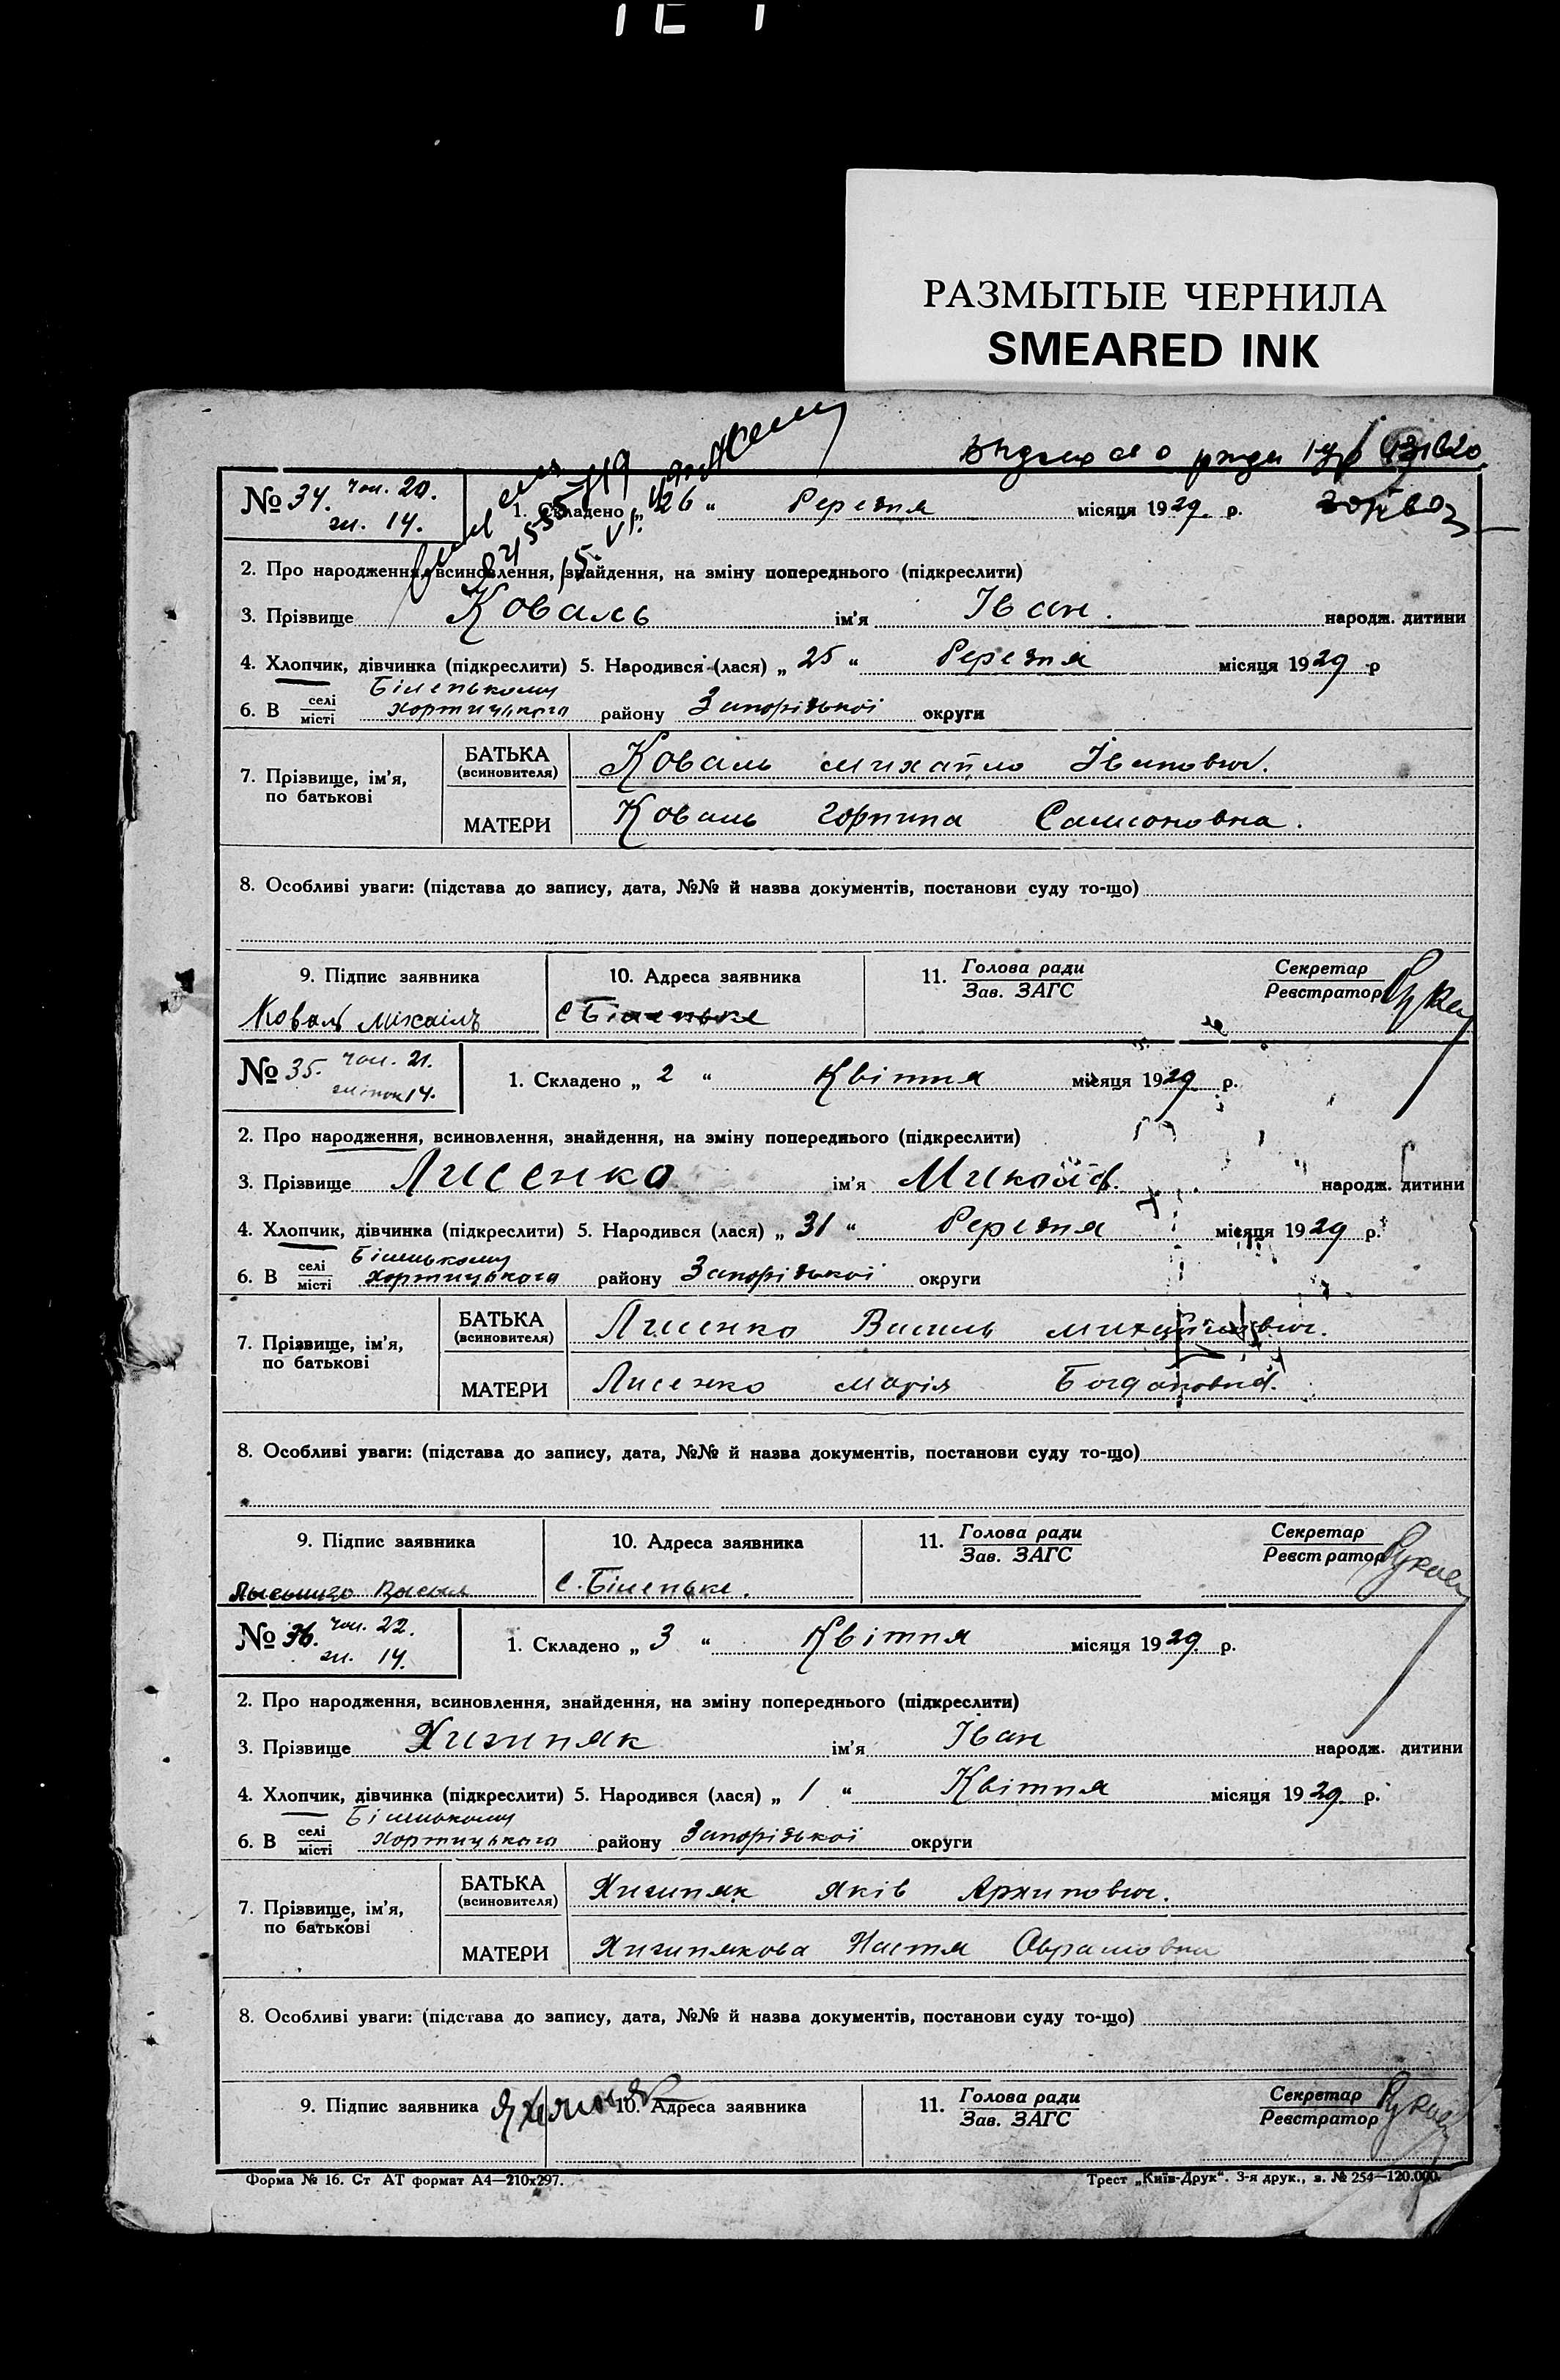 РАЗМЫТЫЕ ЧЕРНИЛА
SMEARED INK
№ 34. чол. 20.
жі. 14.
1. Складено „ 26 “ Березня місяця 1929. р.
2. Про народження, всиновлення, знайдення, на зміну попереднього (підкреслити)
3. Прізвище Коваль ім'я Іван. народж. дитини
4. Хлопчик, дівчинка (підкреслити) 5. Народився (лася) „ 25 “ Березня місяця 1929 р
Біленькому
6. В селі місті Хортицького району Запорізької округи
7. Прізвище, ім'я, по батькові
БАТЬКА (всиновителя) Коваль Михайло Іванович.
МАТЕРИ Коваль Горпина Самсоновна.
8. Особливі уваги: (підстава до запису, дата, №№ й назва документів, постанови суду то-що)
9. Підпис заявника 10. Адреса заявника 11. Голова ради Зав. ЗАГС Секретар Реєстратор
Коваль Михаілъ С Біленьке
№ 35. чол. 21.
жінок 14.
1. Складено „ 2 “ Квітня місяця 1929 р.
2. Про народження, всиновлення, знайдення, на зміну попереднього (підкреслити)
3. Прізвище Лисенко ім'я Микола. народж. дитини
4. Хлопчик, дівчинка (підкреслити) 5. Народився (лася) „ 31 “ Березня місяця 1929 р.
Біленькому
6. В селі місті Хортицького району Запорізької округи
7. Прізвище, ім'я, по батькові
БАТЬКА (всиновителя) Лисенко Василь Михайлович.
МАТЕРИ Лисенко Марія Богдановна.
8. Особливі уваги: (підстава до запису, дата, №№ й назва документів, постанови суду то-що)
9. Підпис заявника 10. Адреса заявника 11. Голова ради Зав. ЗАГС Секретар Реєстратор
С. Біленьке.
№ 36. чол. 22.
жі. 14.
1. Складено „ 3 “ Квітня місяця 1929 р.
2. Про народження, всиновлення, знайдення, на зміну попереднього (підкреслити)
3. Прізвище Хижняк ім'я Іван народж. дитини
4. Хлопчик, дівчинка (підкреслити) 5. Народився (лася) „ 1 “ Квітня місяця 1929 р.
Біленькому
6. В селі місті Хортицького району Запорізької округи
7. Прізвище, ім'я, по батькові
БАТЬКА (всиновителя) Яків Архипович.
МАТЕРИ Настя Аврамовна
8. Особливі уваги: (підстава до запису, дата, №№ й назва документів, постанови суду то-що)
9. Підпис заявника 10. Адреса заявника 11. Голова ради Зав. ЗАГС Секретар Реєстратор
Форма № 16. Ст АТ формат А4—210х297. Трест „Київ-Друк“. 3-я друк., з. № 254—120.000.